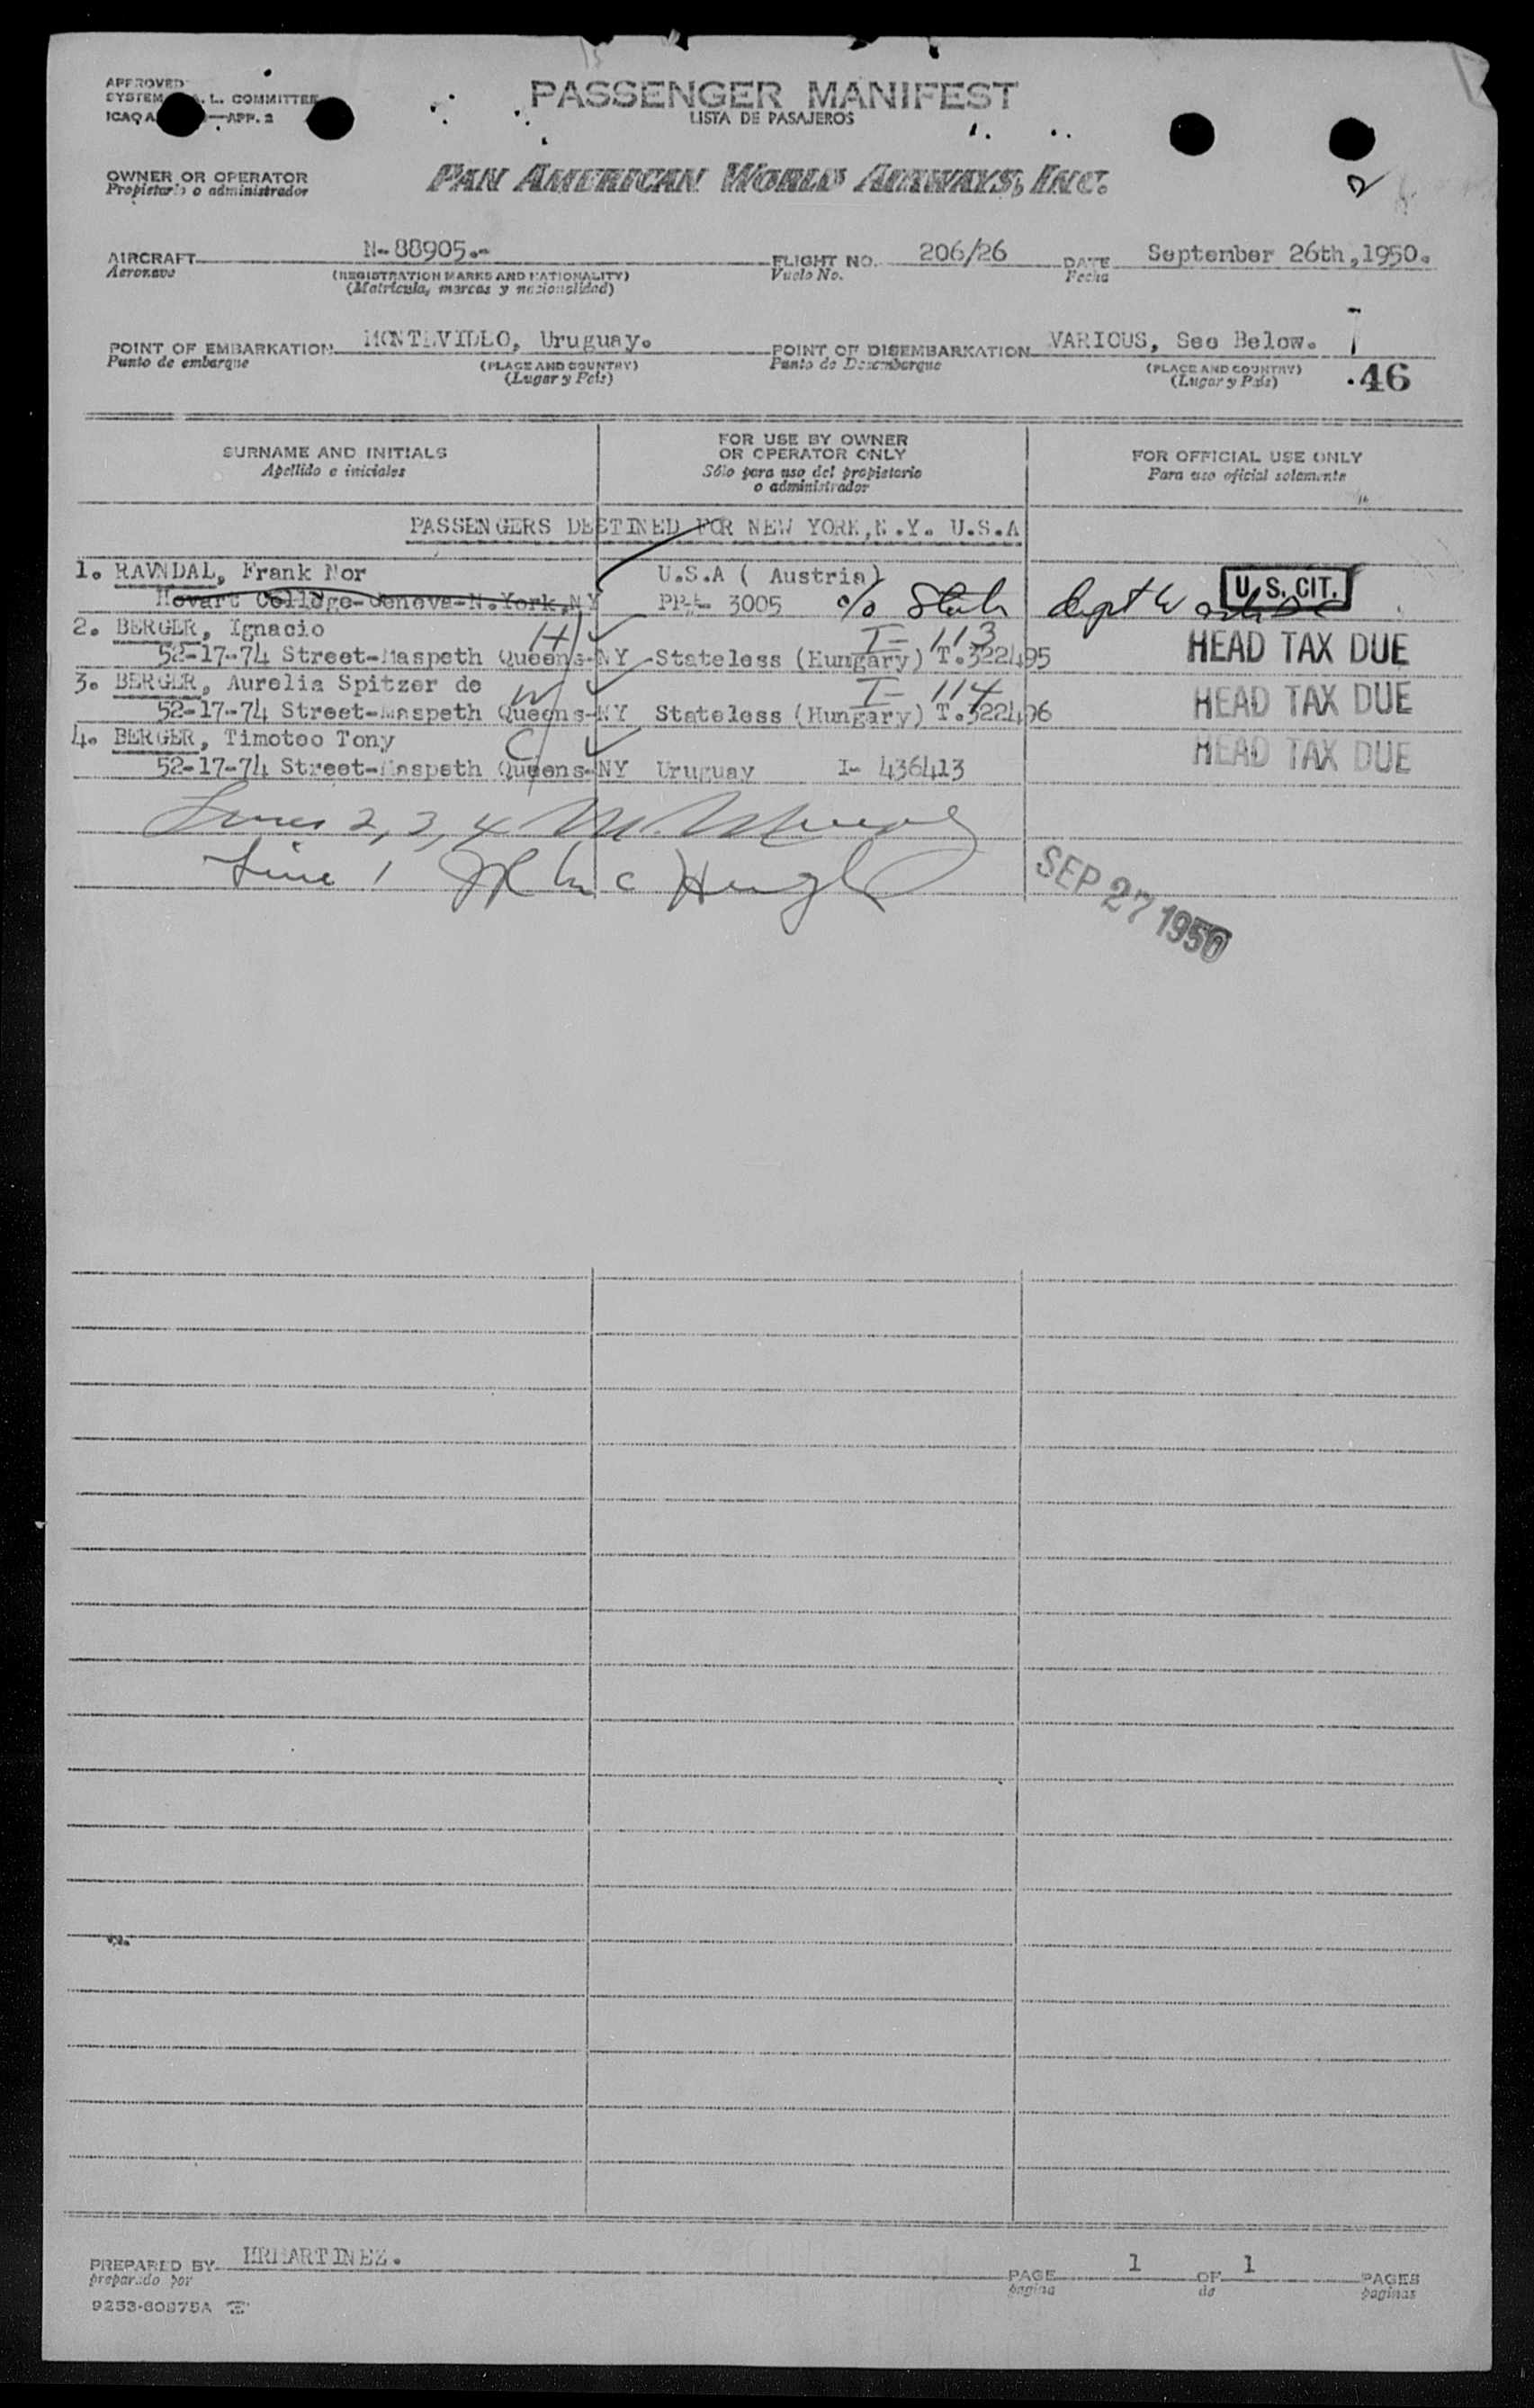 APPROVED
SYSTEM A. L. COMMITTEE
ICAO A APP. 2
PASSENGER MANIFEST
LISTA DE PASAJEROS
OWNER OR OPERATOR
Propietario o administrador
PAN AMERICAN WORLD AIRWAYS, INC.
2
AIRCRAFT N-88905.- FLIGHT NO. 206/26 DATE September 26th,1950.
Aeronave (REGISTRATION MARKS AND NATIONALITY) Vuelo No. Fecha
(Matricula, marcas y nacionalidad)
POINT OF EMBARKATION MONTEVIDEO, Uruguay. POINT OF DISEMBARKATION VARIOUS, See Below.
Punto de embarque (PLACE AND COUNTRY) Punto de Desembarque (PLACE AND COUNTRY)
(Lugar y País) (Lugar y País) .46
SURNAME AND INITIALS
Apellido e iniciales
FOR USE BY OWNER
OR OPERATOR ONLY
Sólo para uso del propietario
o administrador
FOR OFFICIAL USE ONLY
Para uso oficial solamente
PASSENGERS DESTINED FOR NEW YORK,N.Y. U.S.A
1. RAVNDAL, Frank Mor U.S.A ( Austria)
Hovart College-Geneva-N.York,NY 3005 % State Dept Wash DC U. S. CIT.
2. BERGER, Ignacio H I- 113
52-17-74 Street-Maspeth Queens-NY Stateless (Hungary) T.322495 HEAD TAX DUE
3. BERGER, Aurelia Spitzer de W I- 114
52-17-74 Street-Maspeth Queens-NY Stateless (Hungary) T.322496 HEAD TAX DUE
4. BERGER, Timoteo Tony C
52-17-74 Street-Maspeth Queens-NY Uruguay I- 436413 HEAD TAX DUE
Lines 2, 3, 4 M.
Line 1 Mc Hugh
SEP 27 1950
PREPARED BY HRMARTINEZ. PAGE 1 OF 1 PAGES
preparado por pagina de paginas
9253-60875A